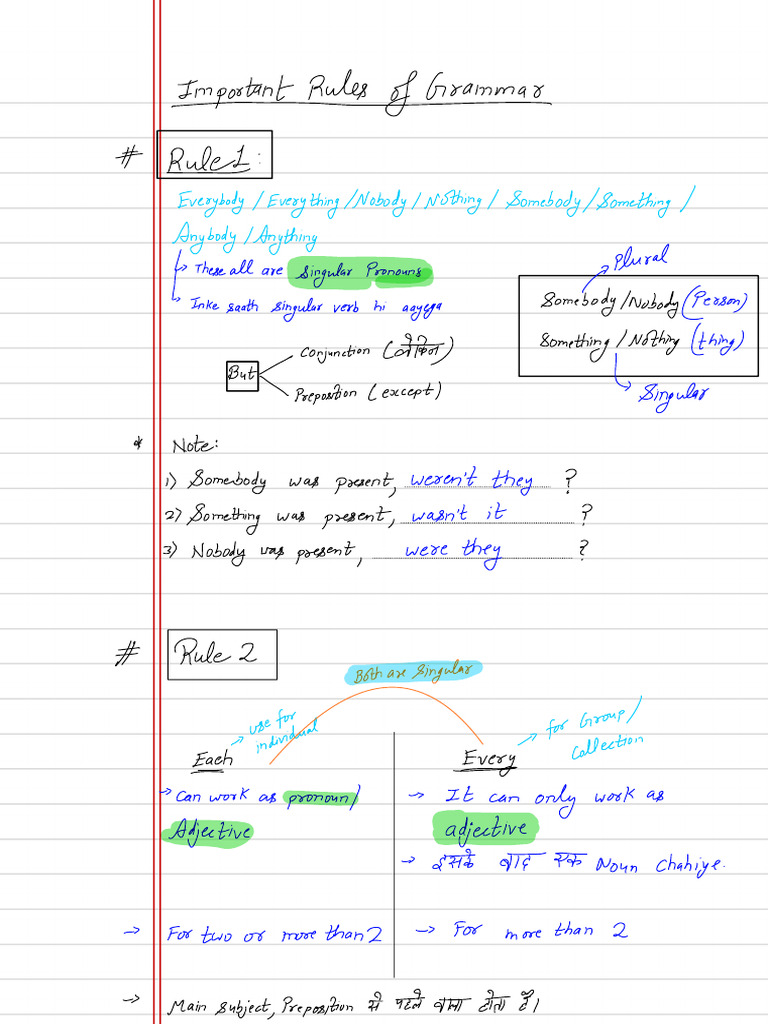 Important Rules of Grammar
# Rule 1:
Everybody / Everything / Nobody / Nothing / Somebody / Something /
Anybody / Anything
These all are Singular Pronouns
Inke saath singular verb hi aayega
Plural
Somebody / Nobody (Person)
Something / Nothing (thing)
Singular
But
Conjunction (लेकिन)
Preposition (except)
* Note:
1) Somebody was present, weren't they ?
2) Something was present, wasn't it ?
3) Nobody was present, were they ?
# Rule 2
Both are Singular
Each → use for individual
→ Can work as pronoun /
Adjective
→ For two or more than 2
Every → for Group / Collection
→ It can only work as
adjective
→ इसके बाद एक Noun chahiye.
→ For more than 2
→ Main Subject, Preposition से पहले वाला होता है।